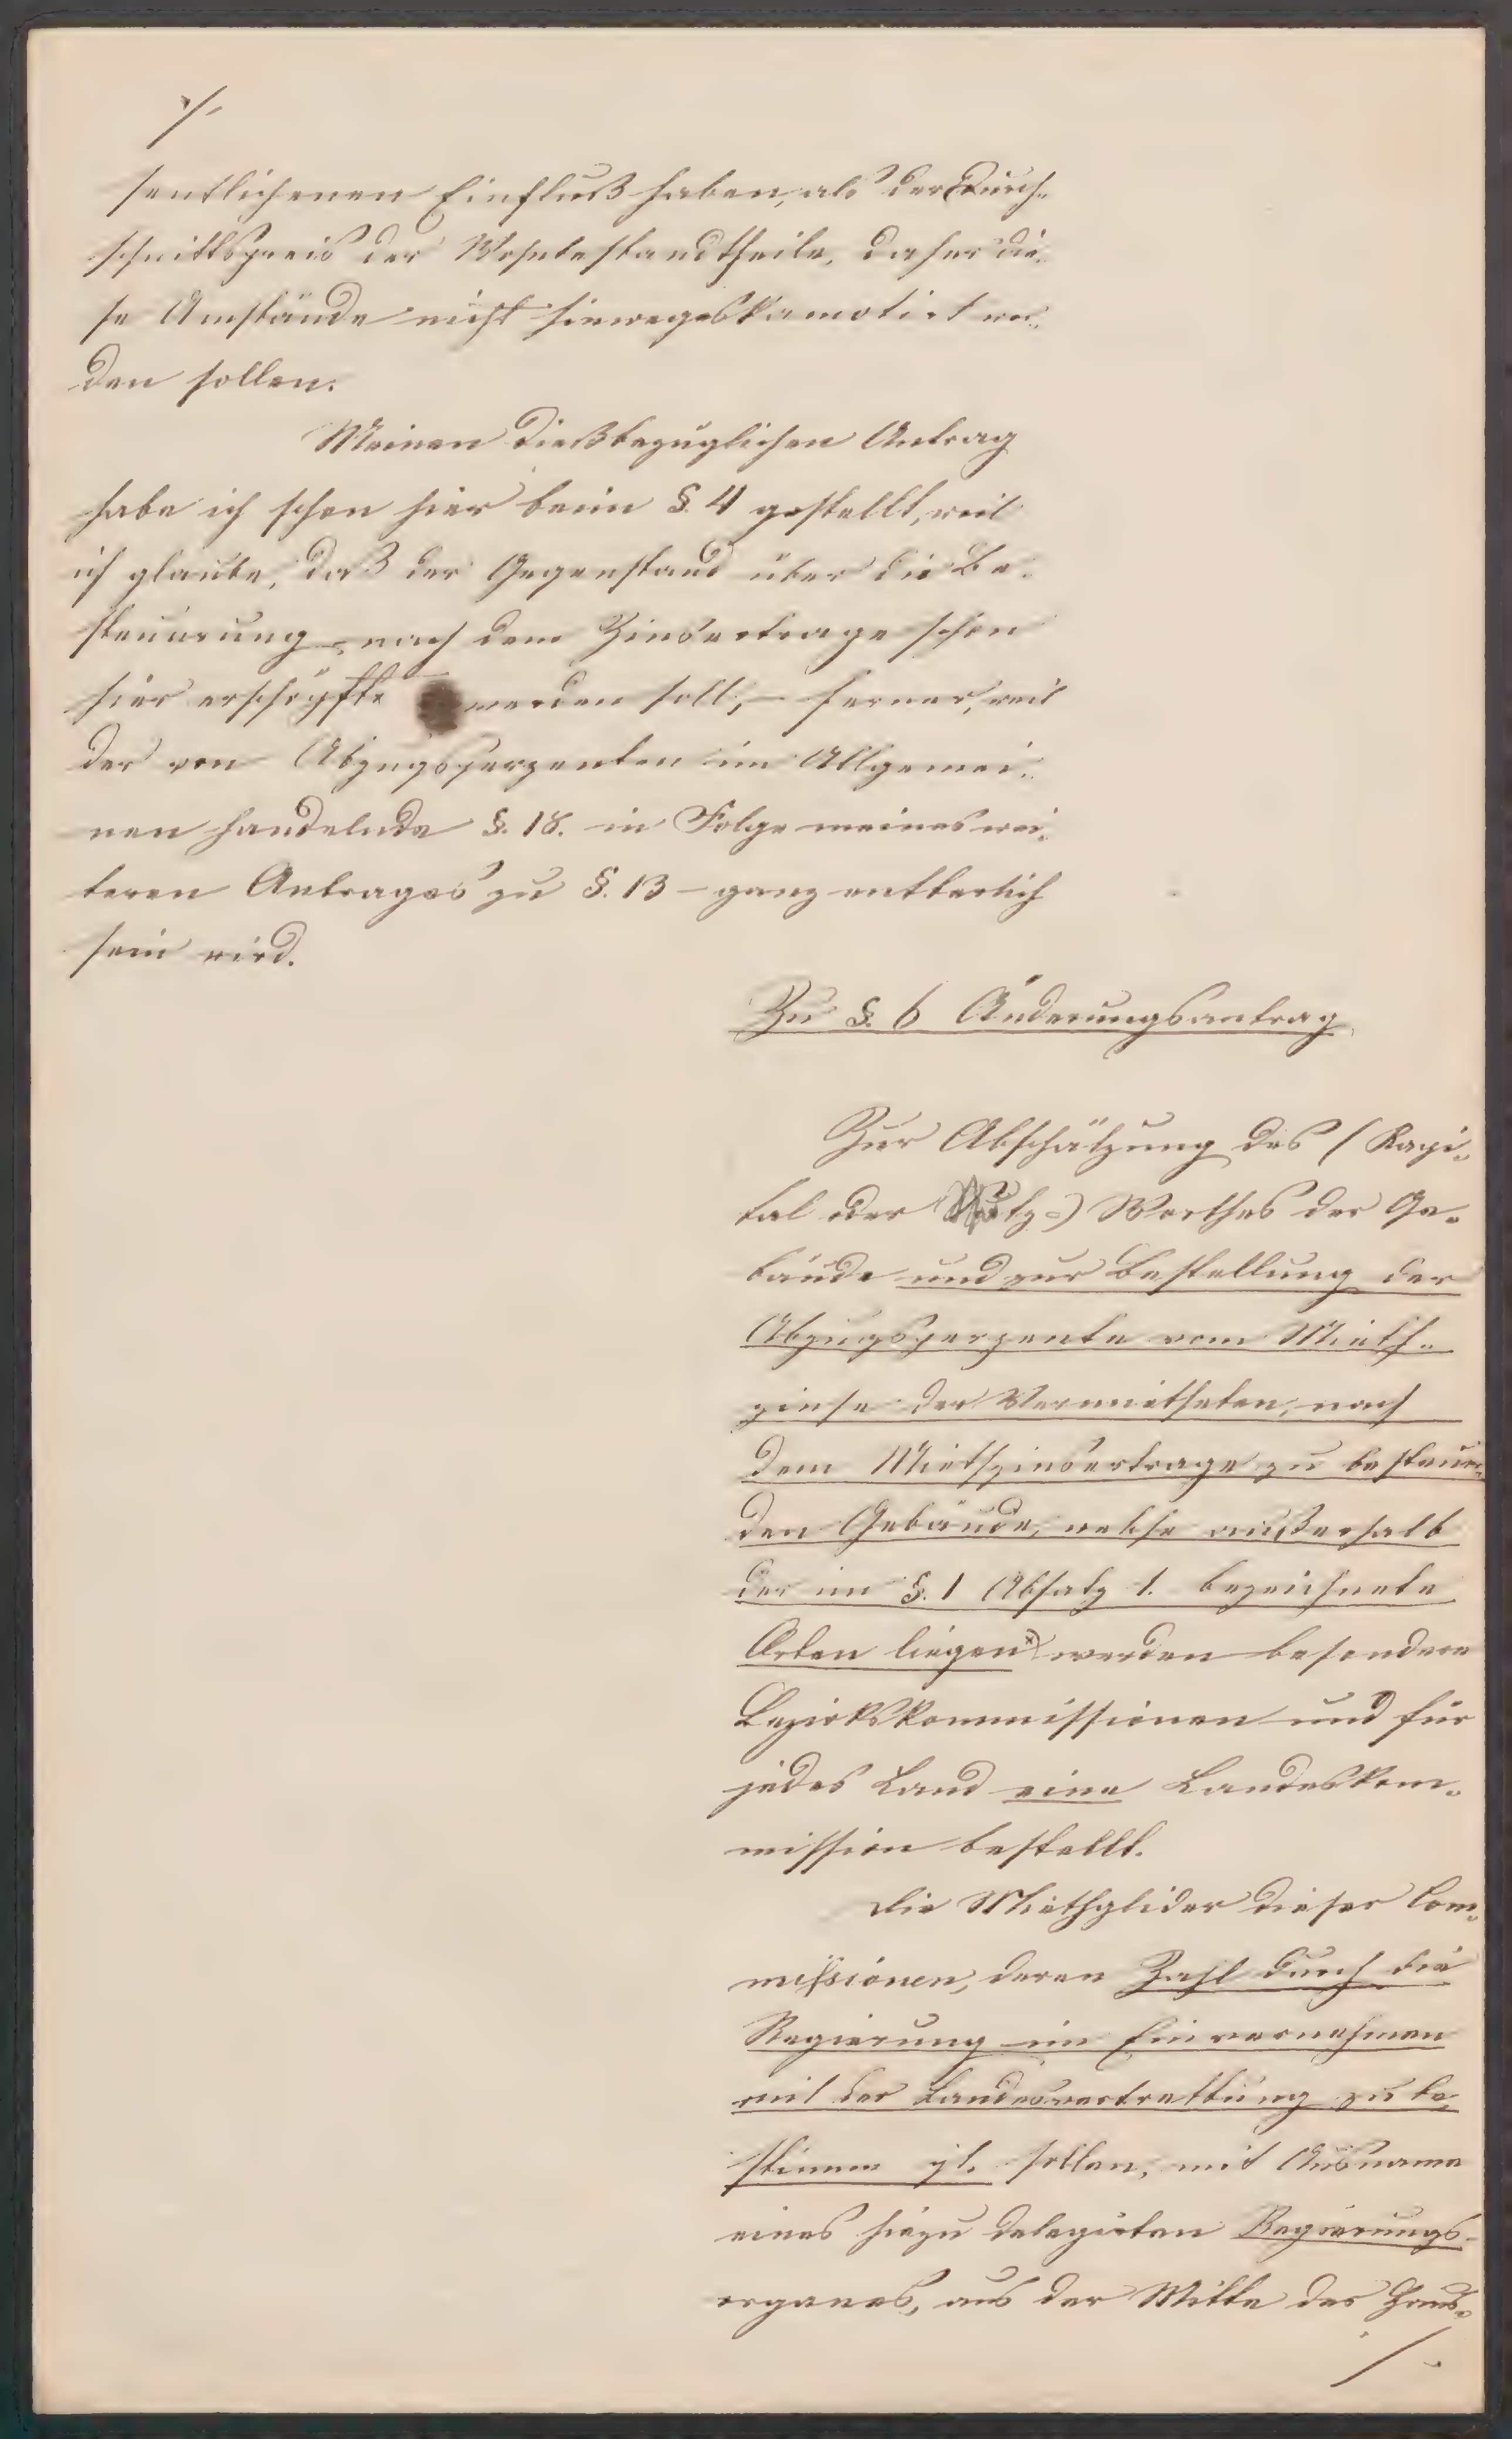 ./.
sentlicheren Einfluß haben, als der Durch-
schnittspreis der Wohnbestandtheile, daher die-
se Umstände nicht hinwegeskamotirt wer-
den sollen.
Meinen dießbezüglichen Antrag
habe ich schon hier beim §. 4 gestellt, weil
ich glaube, daß der Gegenstand über die Be-
steuerung nach dem Zinsertrage schon
hier erschöpft werden soll, – ferner, weil
der von Abzugsperzenten im Allgemei-
nen handelnde §. 18. in Folge meines wei-
teren Antrages zu §. 13 – ganz entberlich
sein wird.
Zu §. 6 Änderungsantrag
Zur Abschätzung des (Kapi-
tal oder Nutz-) Werthes der Ge-
bäude und zur Bestellung der
Abzugsperzente vom Mieth-
zinse der Vermietheten, nach
dem Miethzinsertrage zu besteuern-
den Gebäude, welche außerhalb
der im §. 1 Absatz 1. bezeichnete
Orten liegen x) werden besondere
Bezirkskommissionen und für
jedes Land eine Landeskom-
mission bestellt.
Die Miethglider dieser Com-
missionen, deren Zahl durch die
Regierung im Einvernehmen
mit der Landesvertrettung zu be-
stimm sollen, mit Ausname
eines hiezu delegirten Regierungs-
organes, aus der Mitte der Haus-
./.